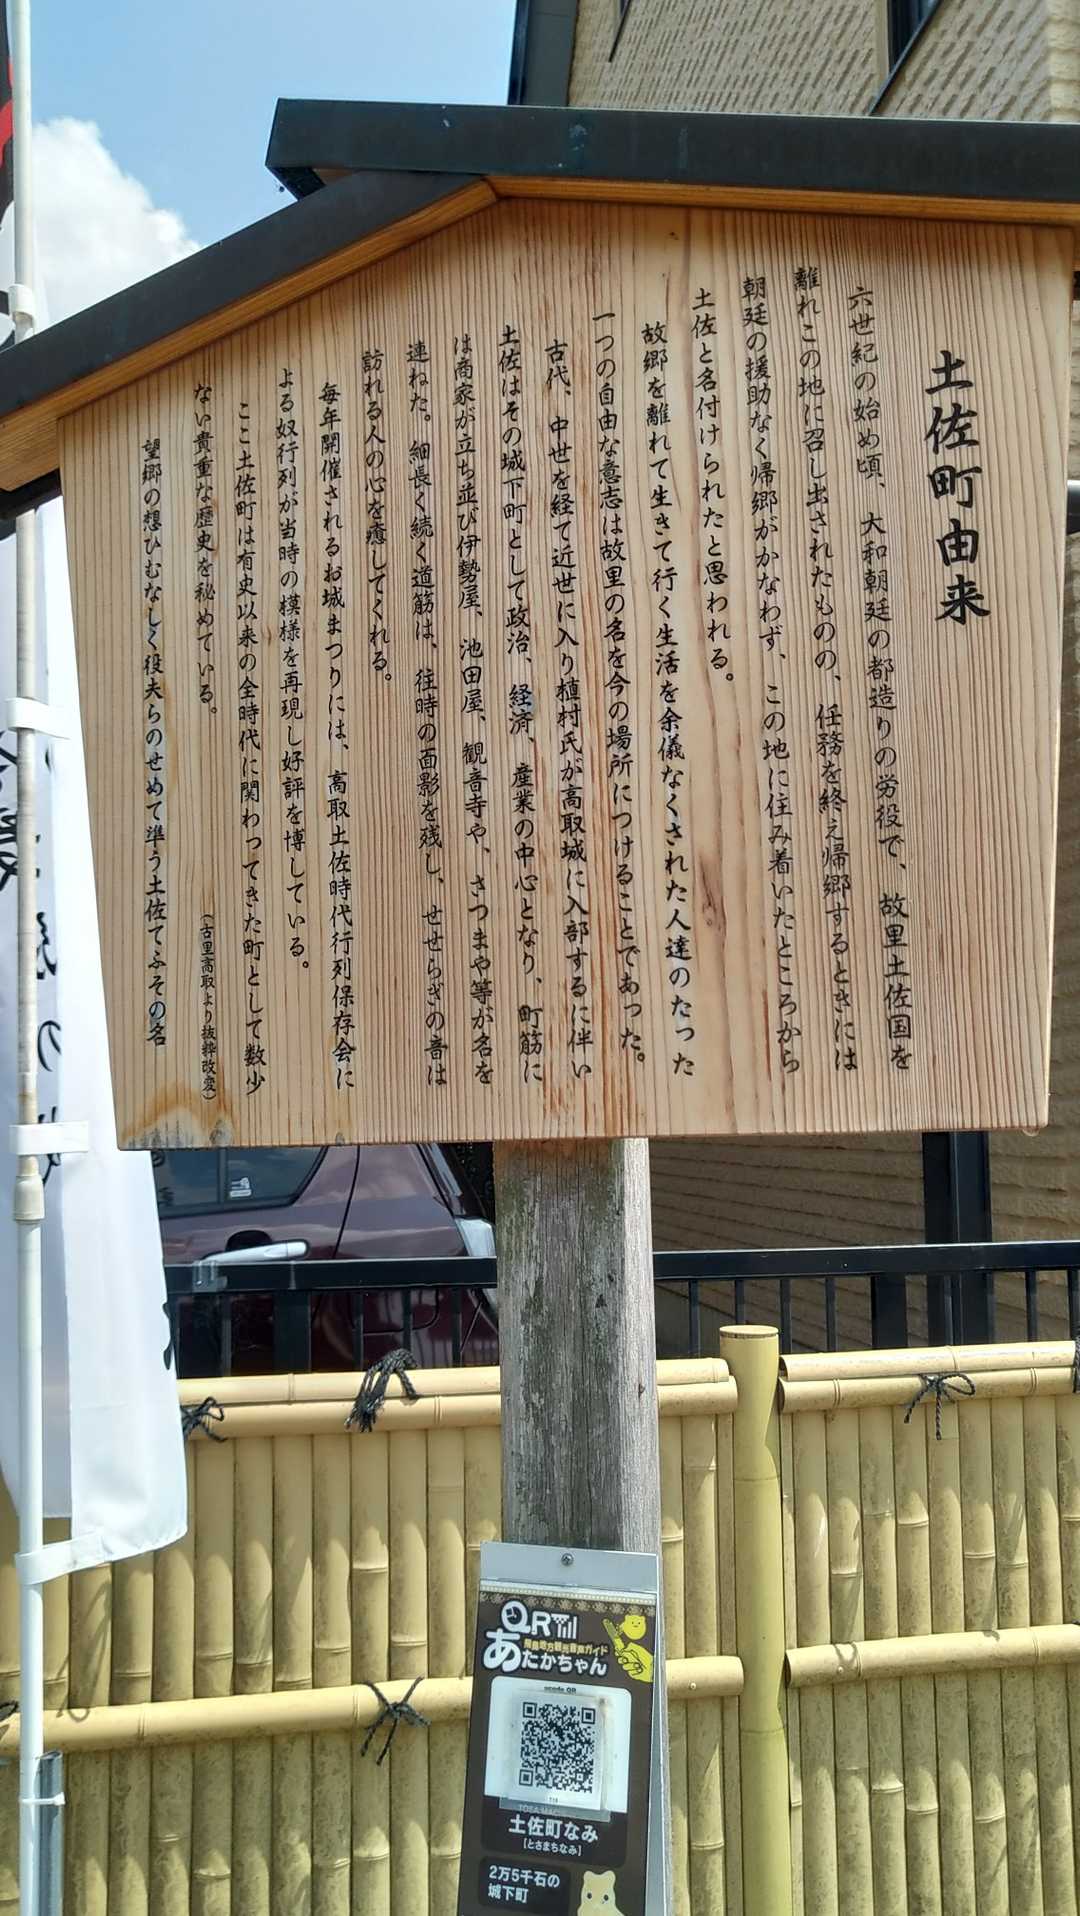 土佐町由来
六世紀の始め頃、大和朝廷の都造りの労役で、故里土佐国を
離れこの地に召し出されたものの、任務を終え帰郷するときには
朝廷の援助なく帰郷がかなわず、この地に住み着いたところから
土佐と名付けられたと思われる。
故郷を離れて生きて行く生活を余儀なくされた人達のたった
一つの自由な意志は故里の名を今の場所につけることであった。
古代、中世を経て近世に入り植村氏が高取城に入部するに伴い
土佐はその城下町として政治、経済、産業の中心となり、町筋に
は商家が立ち並び伊勢屋、池田屋、観音寺や、さつまや等が名を
連ねた。細長く続く道筋は、往時の面影を残し、せせらぎの音は
訪れる人の心を癒してくれる。
毎年開催されるお城まつりには、高取土佐時代行列保存会に
よる奴行列が当時の模様を再現し好評を博している。
ここ土佐町は有史以来の全時代に関わってきた町として数少
ない貴重な歴史を秘めている。
(古里高取より抜粋改変)
望郷の想ひむなしく役夫らのせめて準う土佐てふその名
QR
飛鳥地方観光音声ガイド
あたかちゃん
ucode QR
土佐町なみ
[とさまちなみ]
2万5千石の
城下町